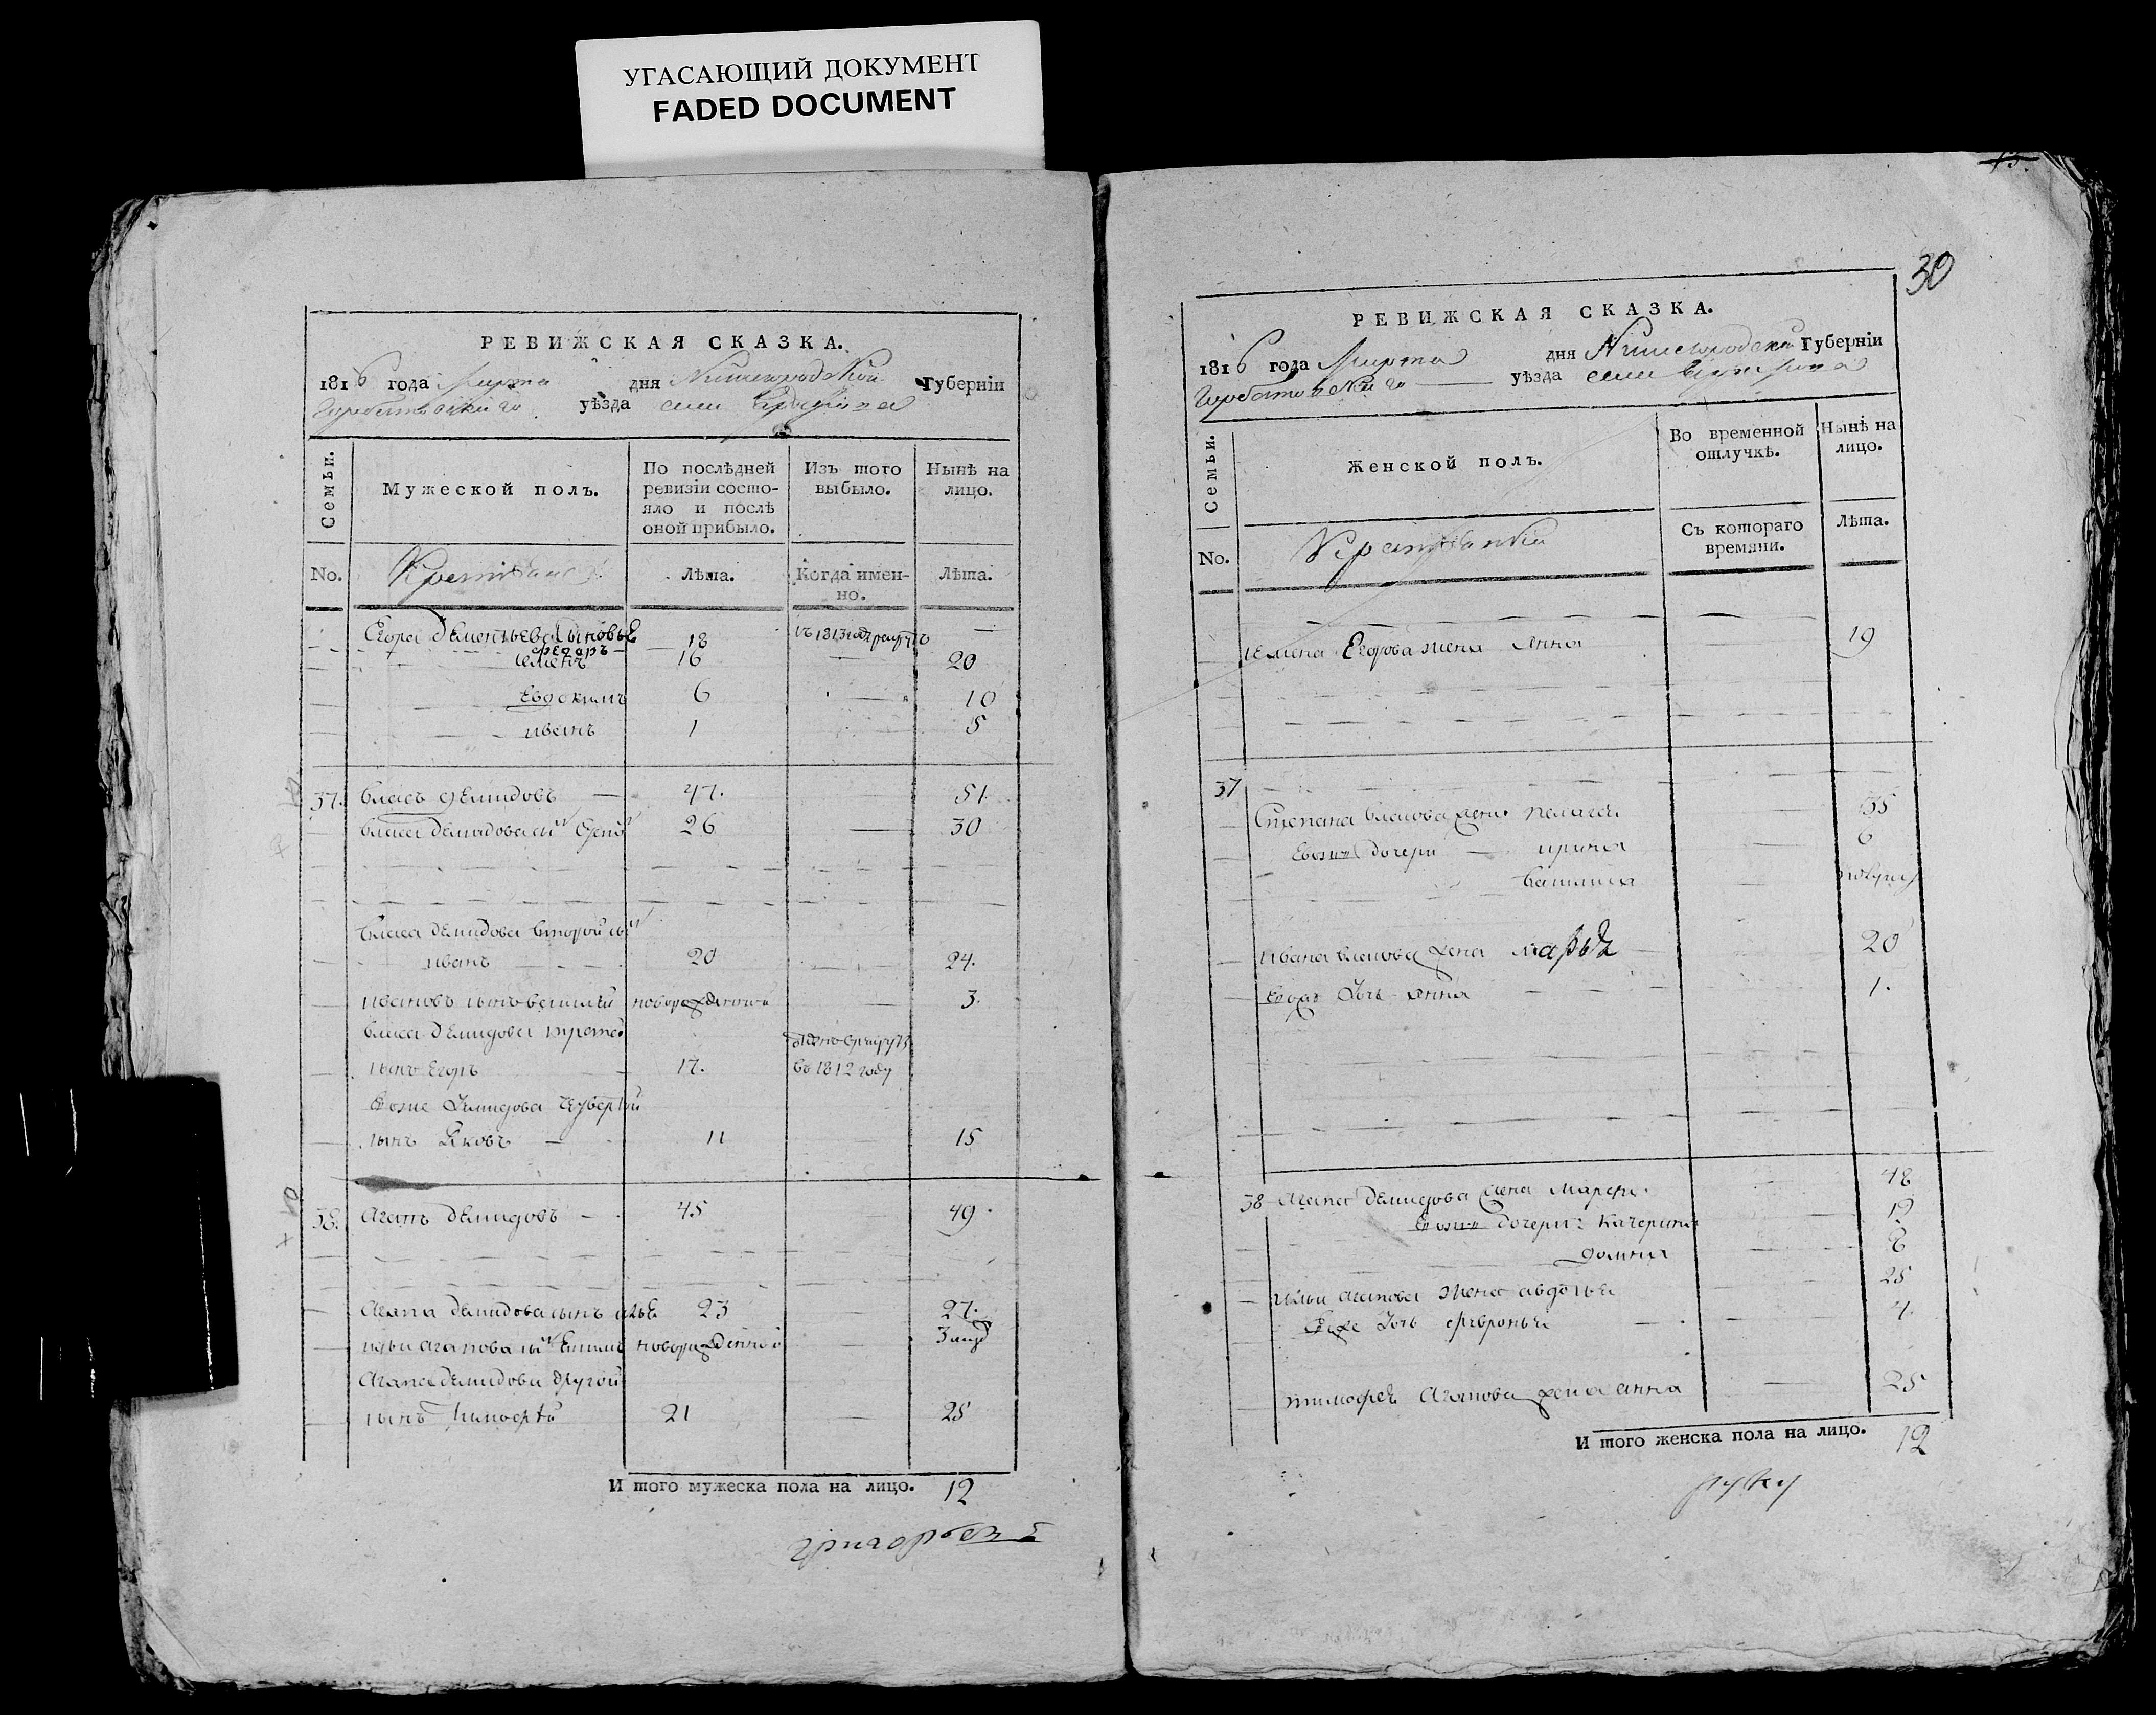 УГАСАЮЩИЙ ДОКУМЕНТ
FADED DOCUMENT
РЕВИЖСКАЯ СКАЗКА.
1816 года Марта дня Нижегородской Губерніи
Горбатовскаго уѣзда села
Семьи.
Мужеской полъ.
По послѣдней ревизіи состояло и послѣ оной прибыло.
Изъ того выбыло.
Нынѣ на лицо.
No.
Лѣта.
Когда именно.
Лѣта.
Егора Дементьева сыновье
Федоръ — 18 въ 1813 году —
Семенъ 16 — 20
Евдокимъ 6 — 10
иванъ 1 5
37. власъ демидовъ — 47. — 51.
власа демидова сынъ 26 — 30
власа демидова второй сынъ
иванъ 20 24.
ивановъ сынъ василей новорожденной — 3.
власа демидова третей
сынъ Егоръ 17. въ 1812 году
демидова четвертой
сынъ Яковъ — 11 15
38. Агапъ демидовъ — 45 49.
Агапа демидова сынъ илья 23 — 27.
ильи агапова сынъ новорожденной — 3
Агапа демидова другой
сынъ Тимофей 21 — 25
И того мужеска пола на лицо. 12
григорьевъ
13.
30
РЕВИЖСКАЯ СКАЗКА.
1816 года Марта дня Нижегородской Губерніи
Горбатовскаго — уѣзда села
Семьи.
Женской полъ.
Во временной отлучкѣ.
Нынѣ на лицо.
No.
Съ котораго времяни.
Лѣта.
Егорова жена Анна — 19
37
Степана власова жена пелагея — 35
дочери — ирина — 6
василиса —
ивана власова жена марья — 20
дочь анна 1.
38 Агапа демидова жена марфа 48
дочери: катерина 19
домна 8
ильи агапова жена авдотья 25
дочь февронья — 4.
тимофея Агапова жена анна — 25
И того женска пола на лицо. 12
руку